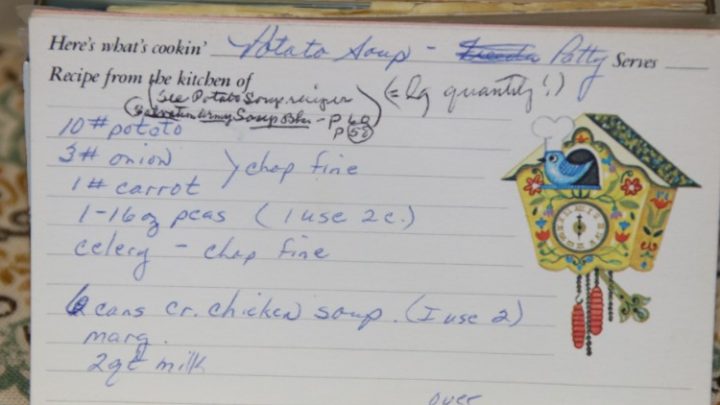 Here's what's cookin' Potato Soup - Patty Serves
Recipe from the kitchen of (= lg quantity!)
(See Potato Soup recipes
Salvation Army Soup Bk - P 60
P 50
10# potato
3# onion } chop fine
1# carrot
1-16oz peas (I use 2c.)
celery - chop fine
6 cans cr. chicken soup. (I use 2)
marg.
2qt milk
over